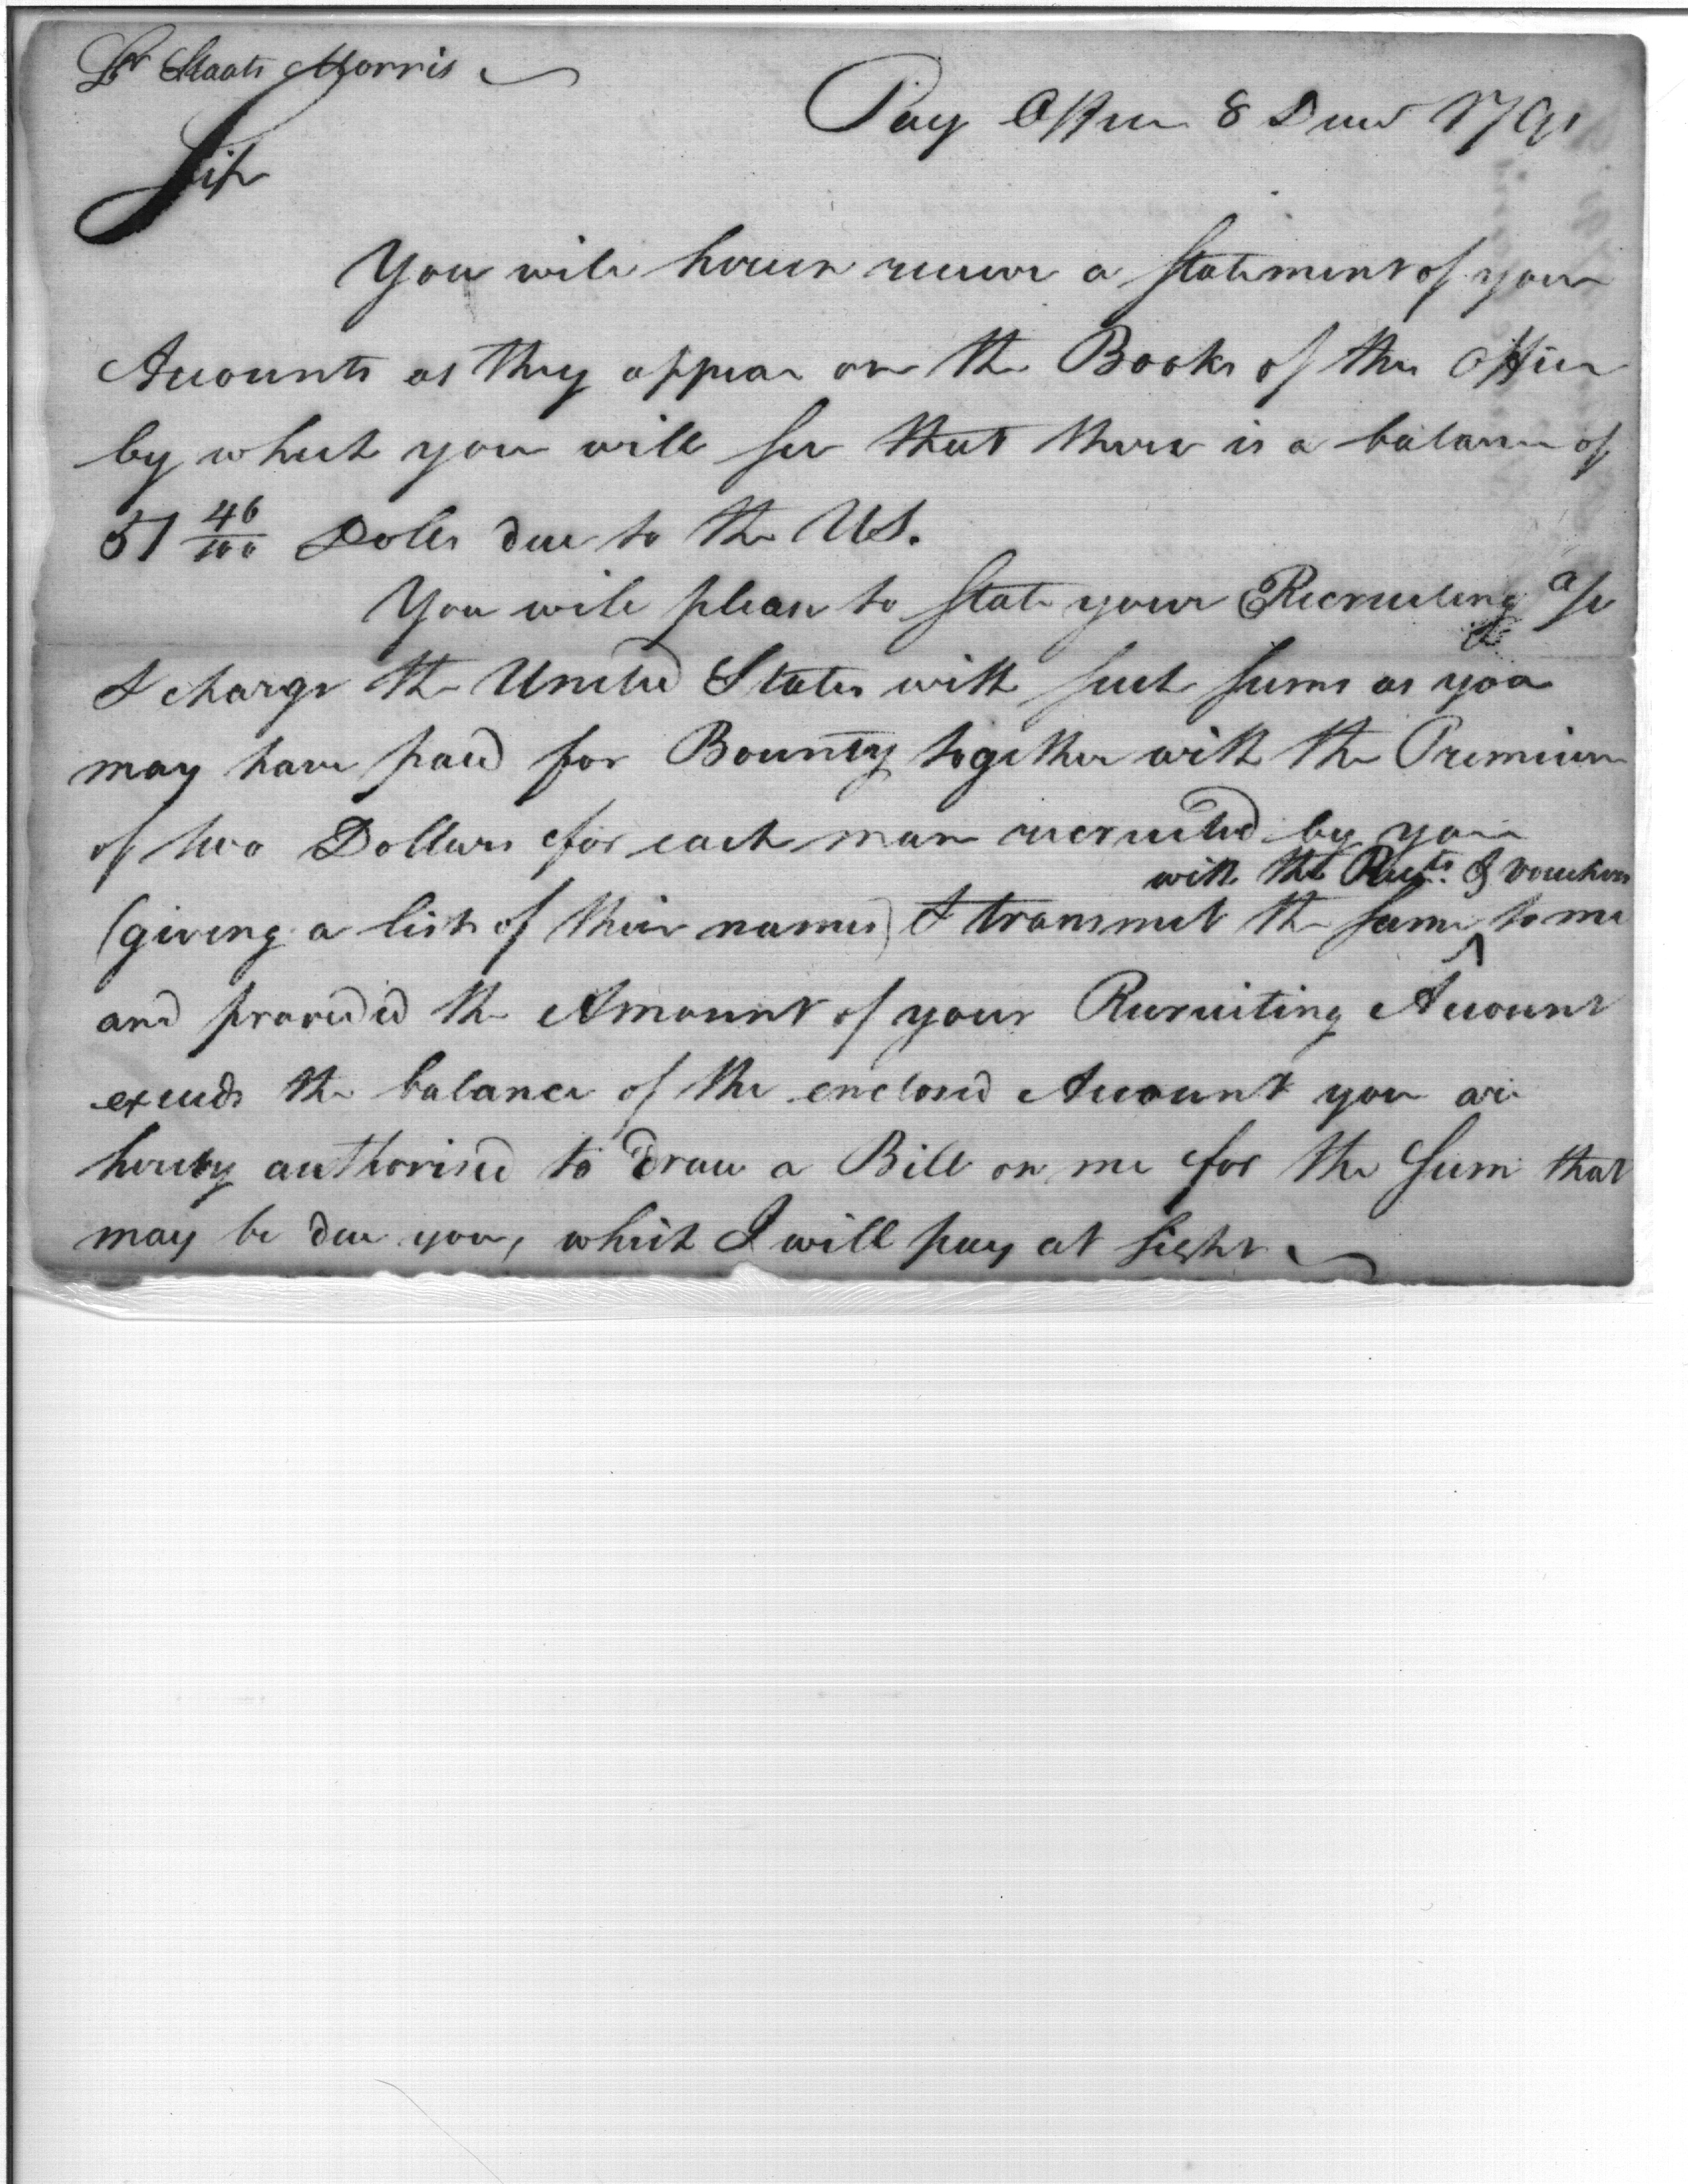 Lt Staats Morris
Pay Office 8 Decr 1791
Sir
You will herein receive a Statement of your
Accounts as they appear on the Books of this Office
by which you will see that there is a balance of
51 46/100 Dolls due to the US.
You will please to State your Recruiting a/c
& charge the United States with such sums as you
may have paid for Bounty together with the Premium
of two Dollars for each man recruited by you
with the Rects. & vouchers
(giving a list of their names) & transmit the same ^ to me
and provided the Amount of your Recruiting Account
exceeds the balance of the enclosed Account you are
hereby authorised to draw a Bill on me for the Sum that
may be due you, which I will pay at sight.